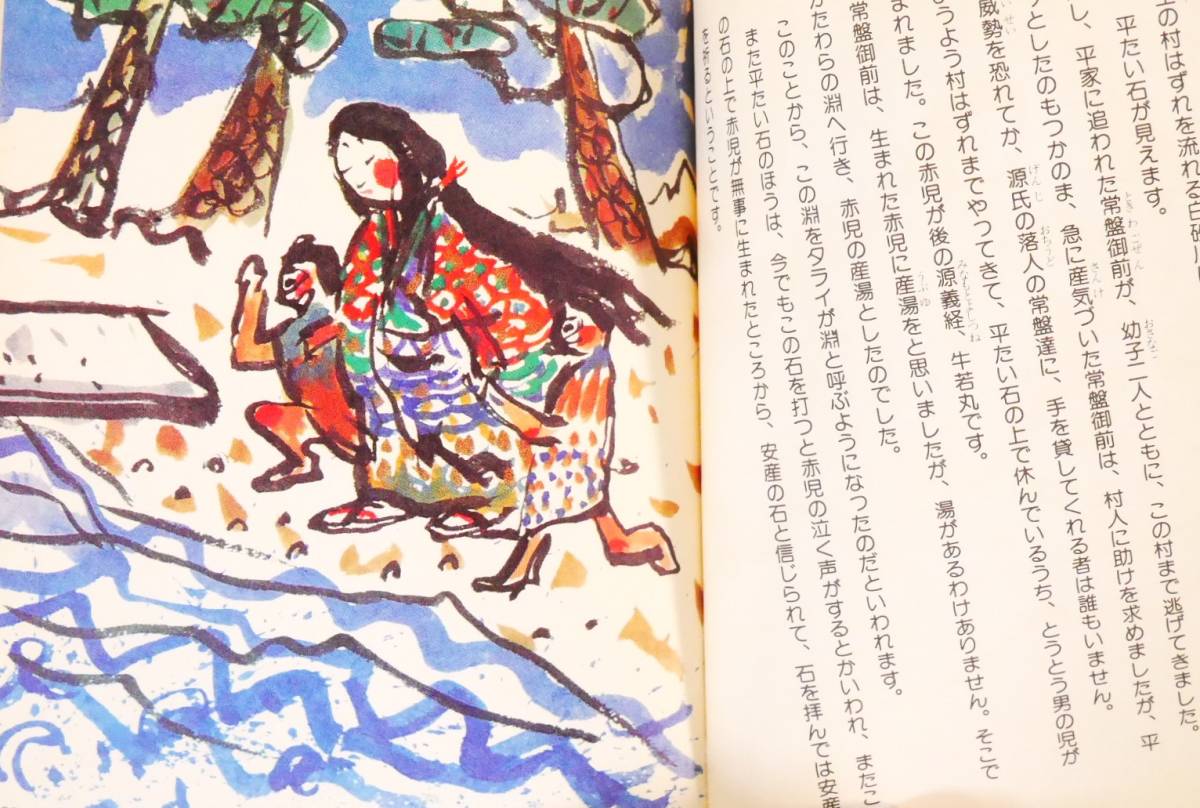 の村はずれを流れる
平たい石が見えます。
し、平家に追われた常盤御前が、幼子二人とともに、この村まで逃げてきました。
りとしたのもつかのま、急に産気づいた常盤御前は、村人に助けを求めましたが、平
威勢を恐れてか、源氏の落人の常盤達に、手を貸してくれる者は誰もいません。
ようよう村はずれまでやってきて、平たい石の上で休んでいるうち、とうとう男の児が
まれました。この赤児が後の源義経、牛若丸です。
常盤御前は、生まれた赤児に産湯をと思いましたが、湯があるわけありません。そこで
かたわらの淵へ行き、赤児の産湯としたのでした。
このことから、この淵をタライが淵と呼ぶようになったのだといわれます。
また平たい石のほうは、今でもこの石を打つと赤児の泣く声がするとかいわれ、またこ
の石の上で赤児が無事に生まれたところから、安産の石と信じられて、石を拝んでは安産
を祈るということです。